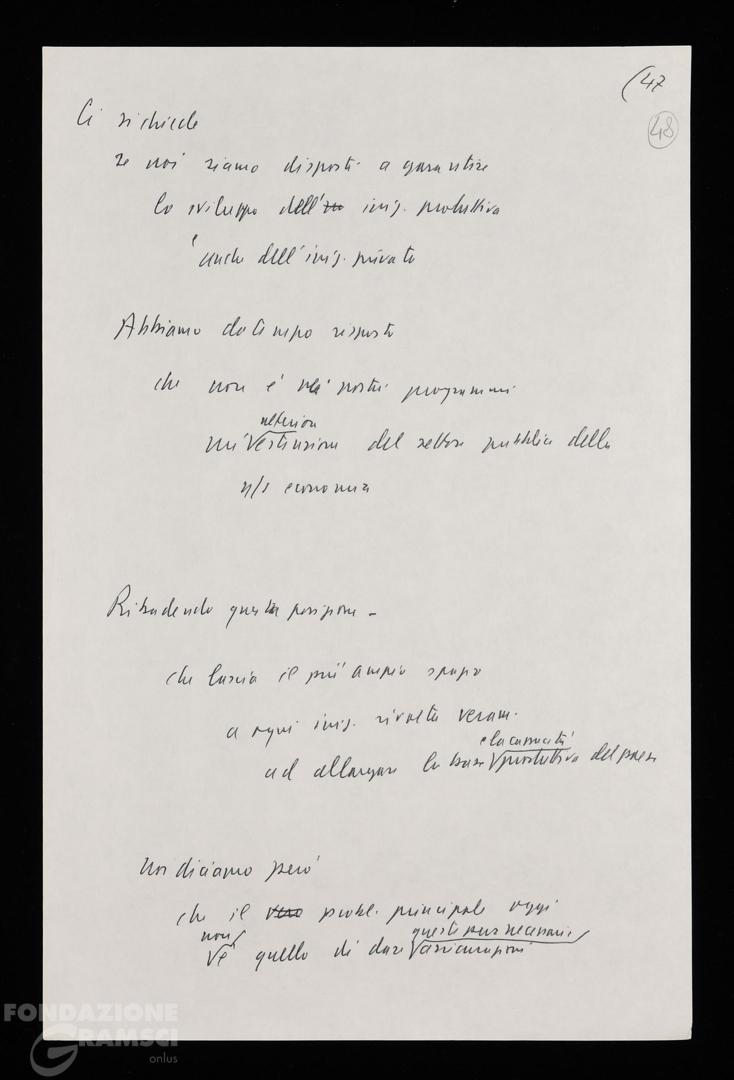 (47
48
Ci si chiede
se noi siamo disposti a garantire
lo sviluppo dell' iniz. produttiva
anche dell'iniz. privata
Abbiamo da tempo risposto
che non è nei nostri programmi
ulteriore
un'estensione del settore pubblico della
n/s economia
Ribadendo questa posizione -
che lascia il più ampio spazio
a ogni iniz. rivolta veram.
e la capacità
ad allargare la base produttiva del paese
noi diciamo però
che il vero probl. principale oggi
non questi pur necessarie
è quello di dare assicurazioni
FONDAZIONE
GRAMSCI
onlus